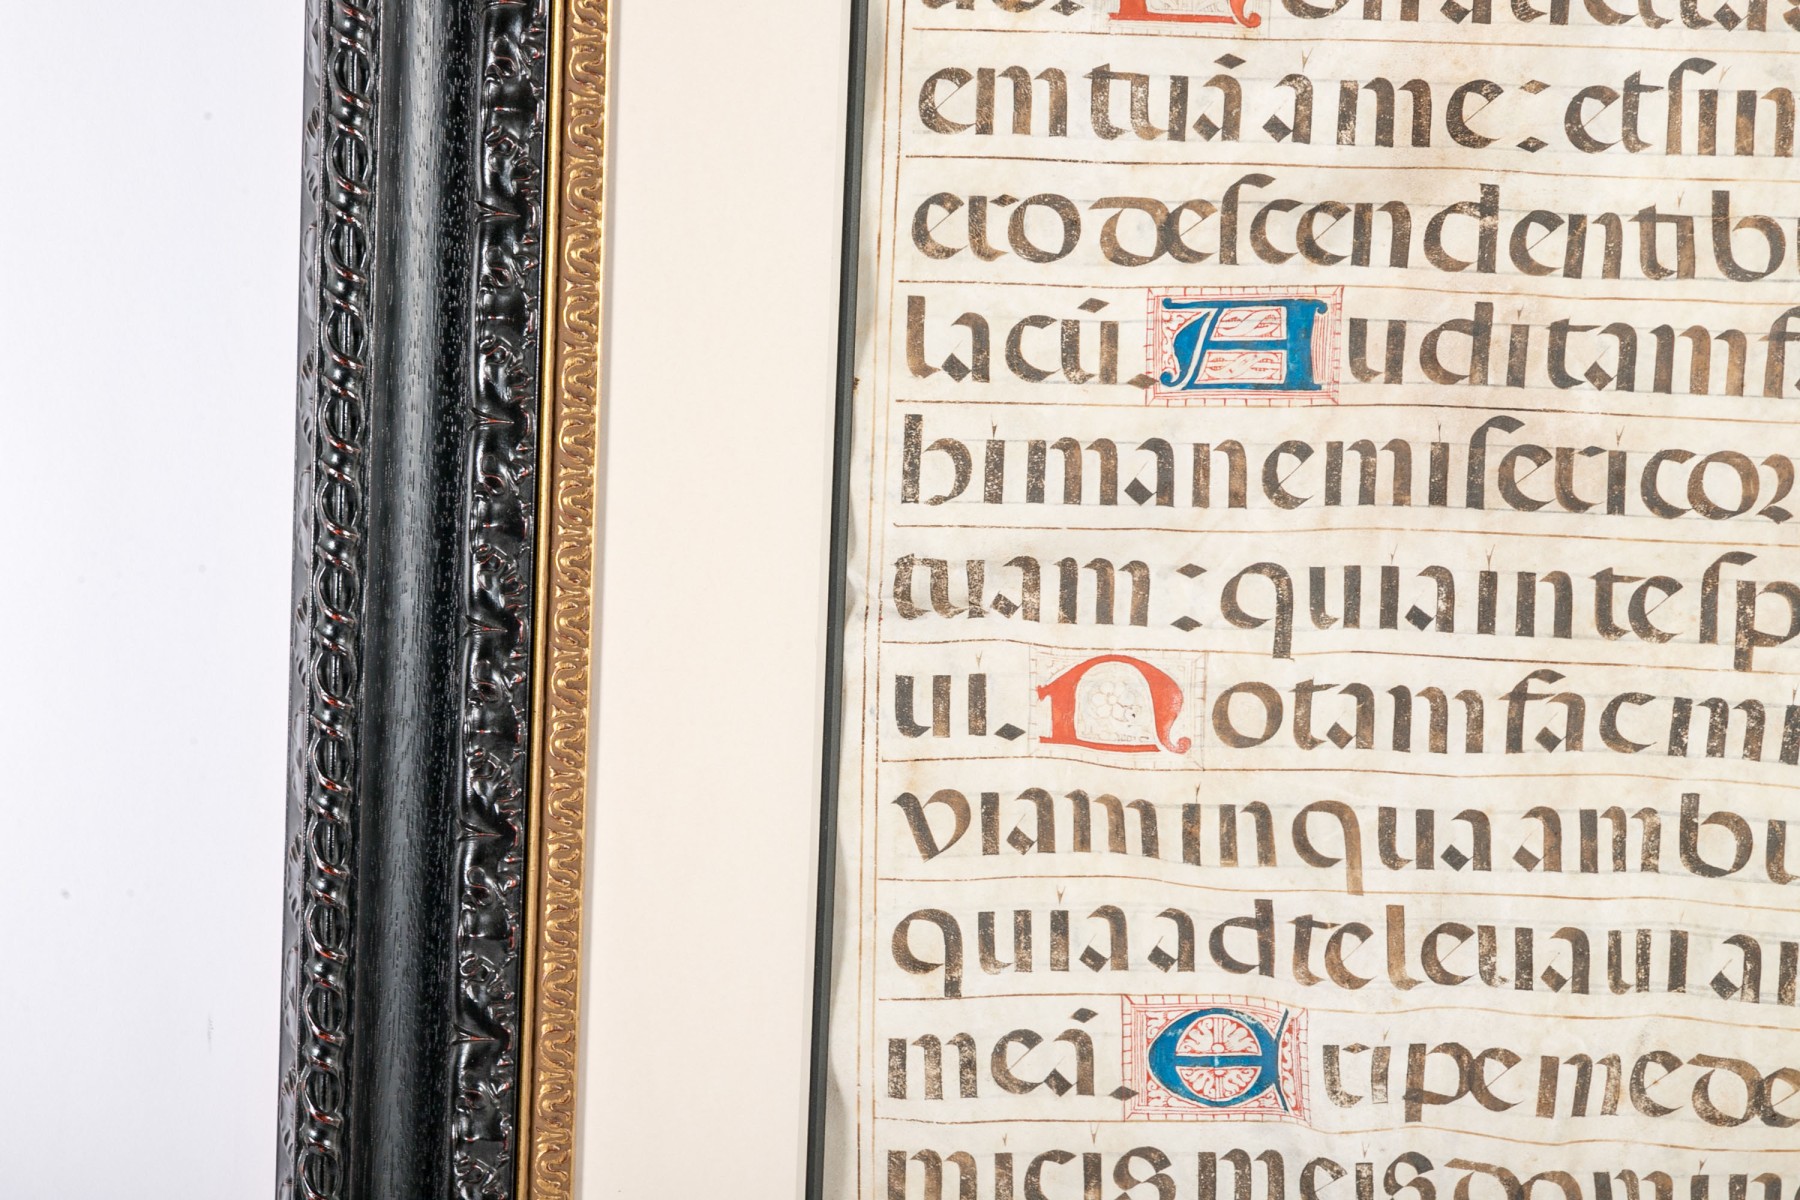 Non auertas faci
em tuā a me: et sim
ero descendentibu
lacū. Auditam f
bi mane misericor
tuam: quia in te sp
ui. Notam fac mi
viam in qua ambu
quia ad te leuaui a
meā. Eripe me de
micis meis domin